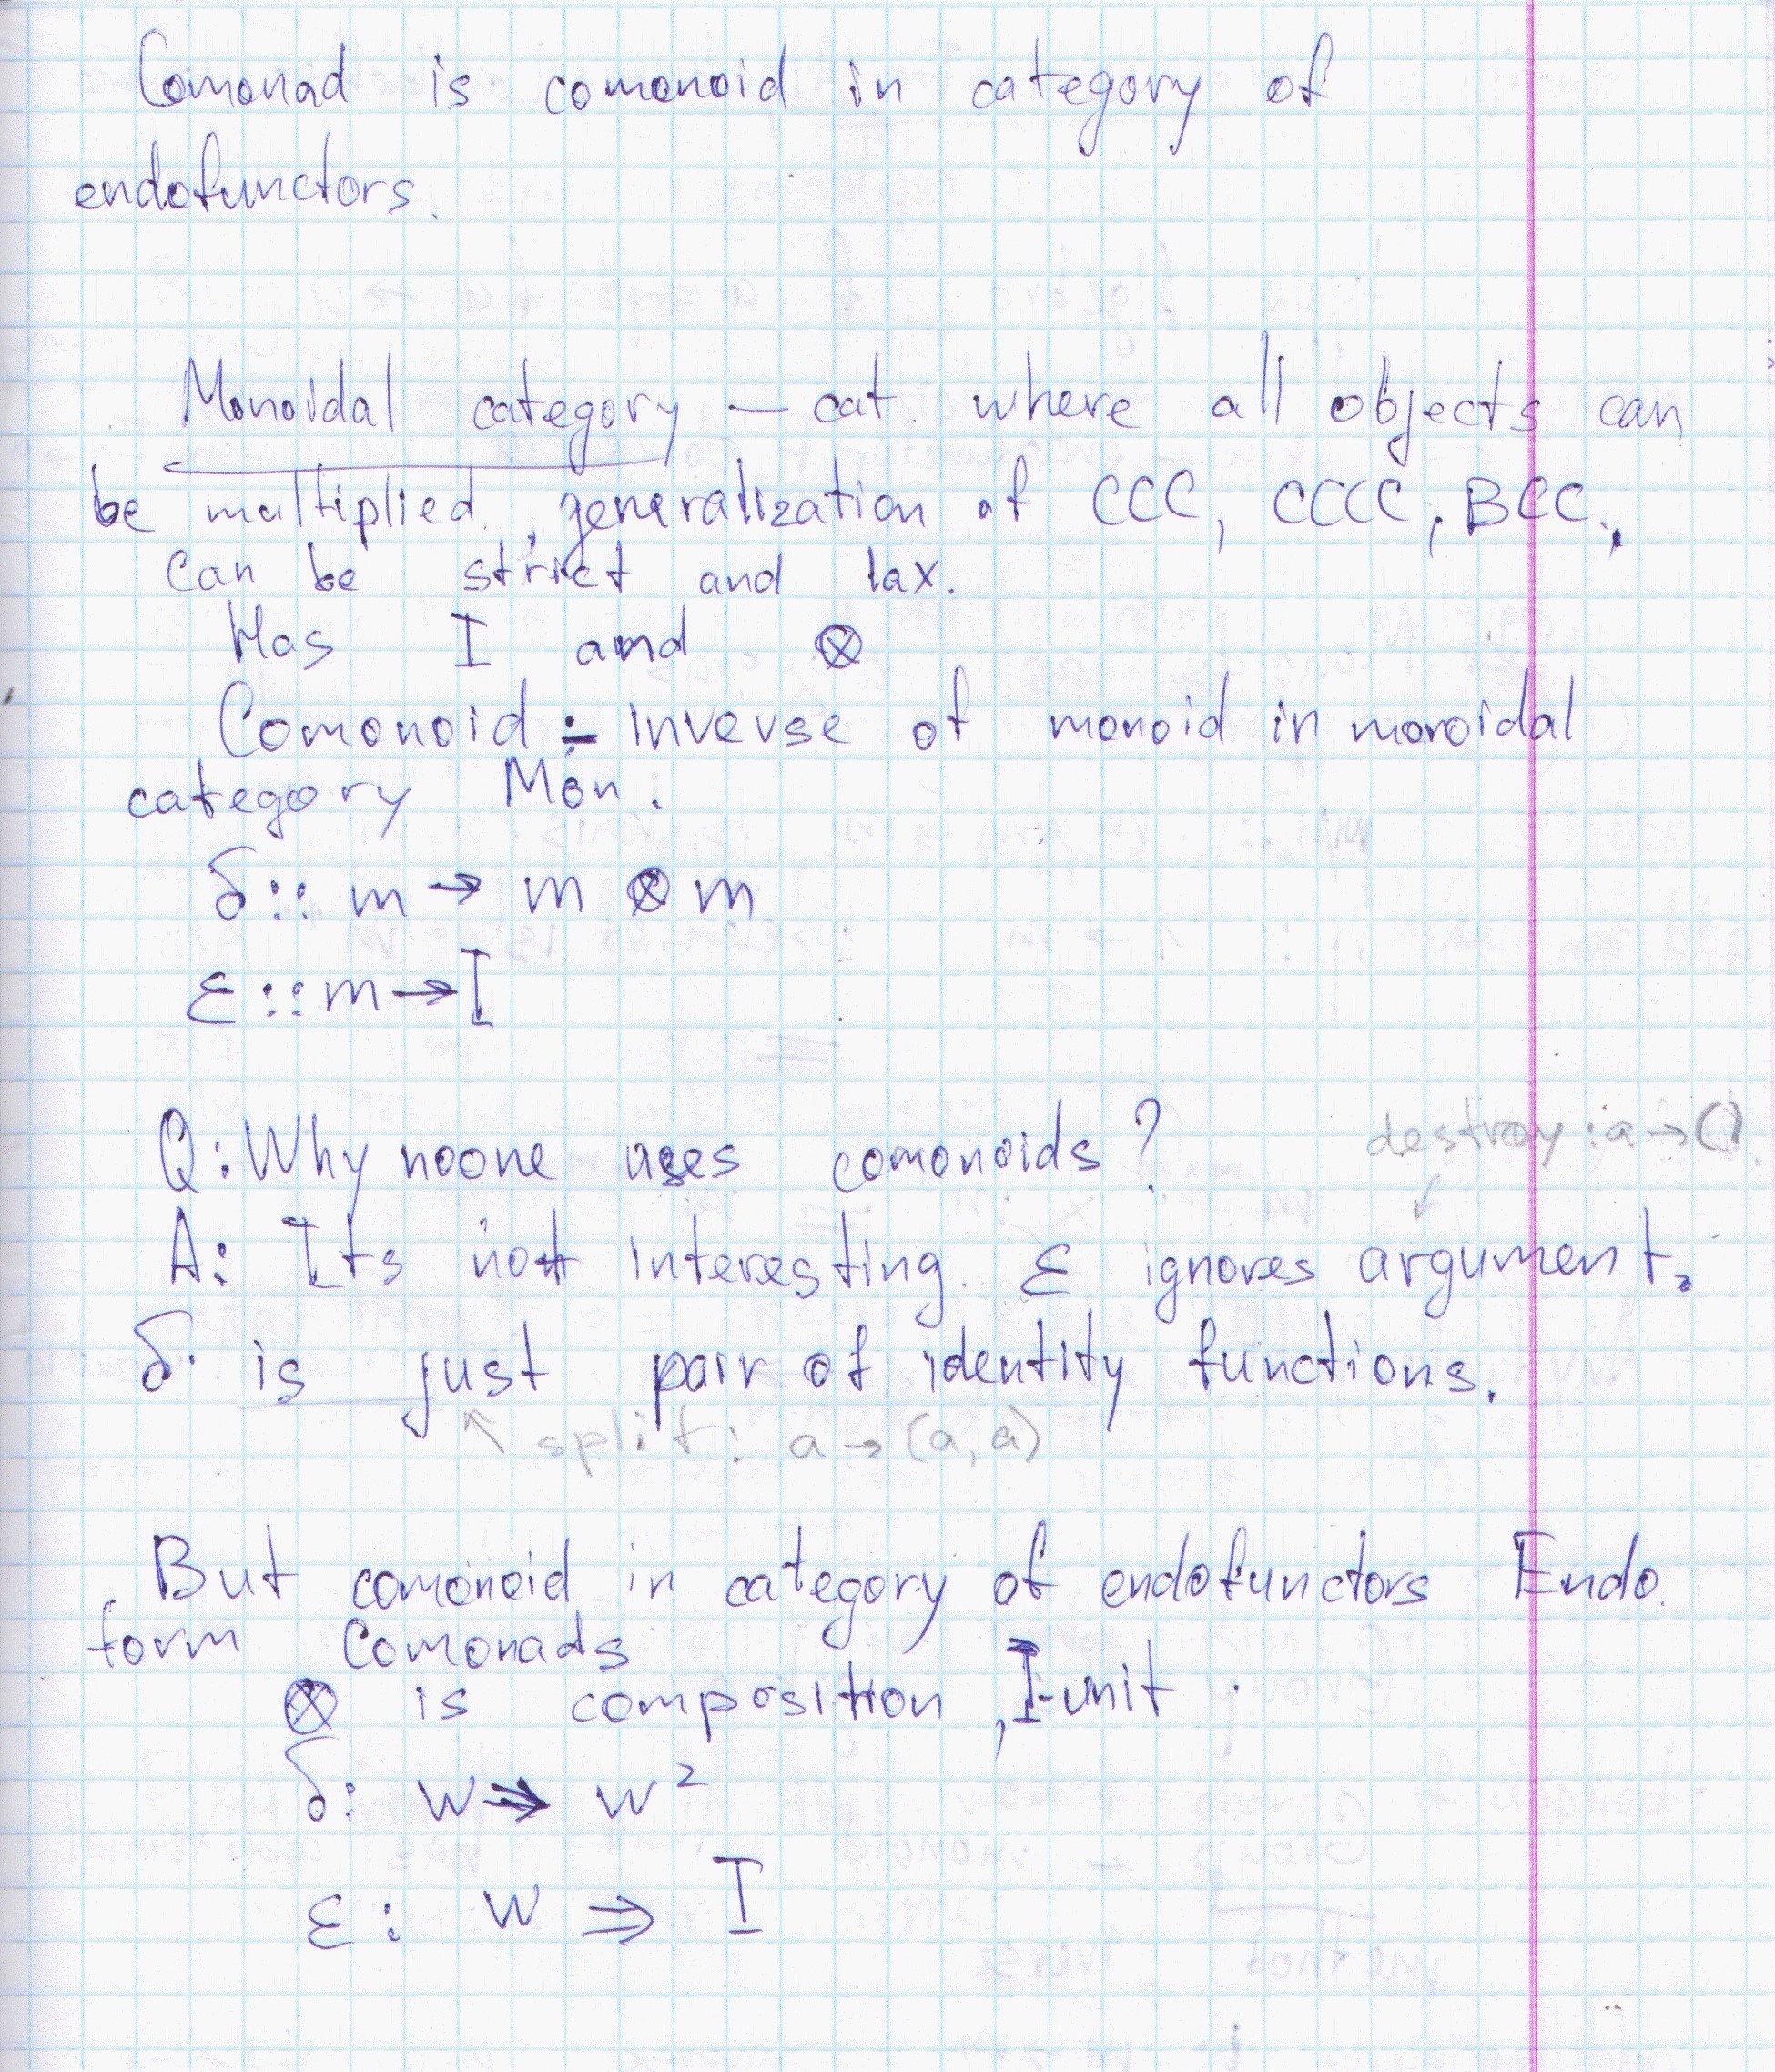 Comonad is comonoid in category of
endofunctors.
Monoidal category — cat. where all objects can
be multiplied, generalization of CCC, CCCC, BCC.,
can be strict and lax.
Has I and ⊗
Comonoid ÷ inverse of monoid in monoidal
category Mon.
δ :: m → m ⊗ m
ε :: m → I
Q: Why noone uses comonoids?
destroy : a → ()
A: Its not interesting. ε ignores argument.
δ is just pair of identity functions.
split : a → (a, a)
But comonoid in category of endofunctors Endo.
form Comonads
⊗ is composition, I-unit
δ: W ⇒ W²
ε: W ⇒ I